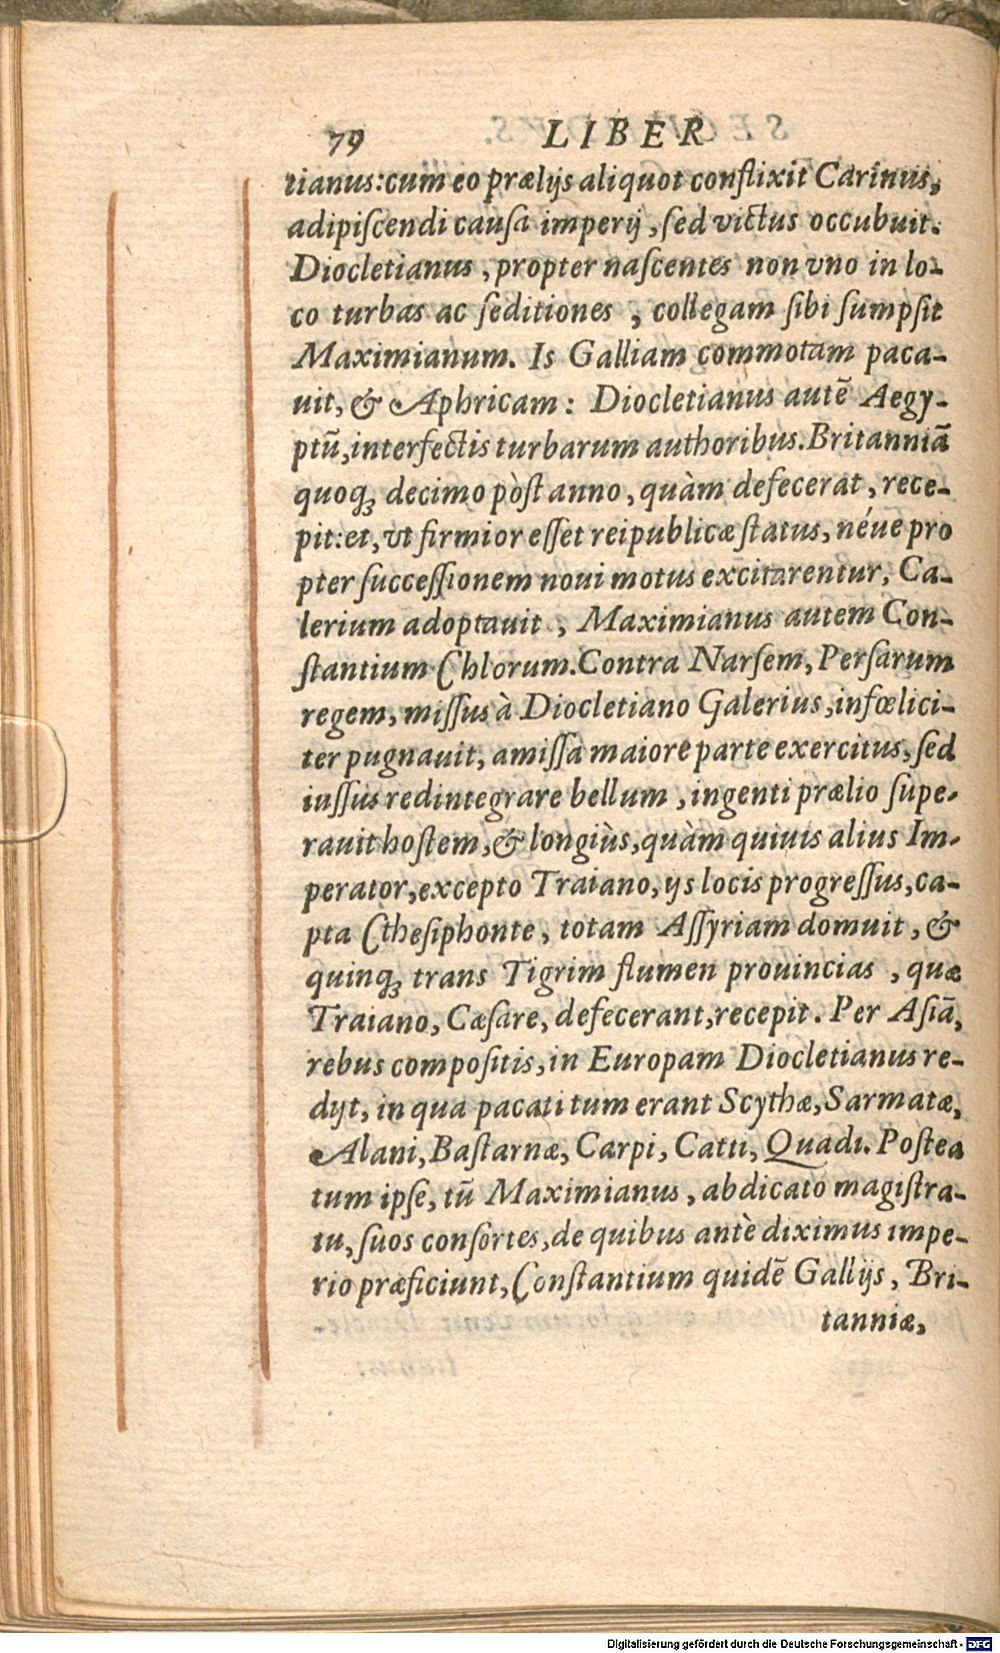 79 LIBER
tianus: cum eo prælijs aliquot conflixit Carinus,
adipiſcendi cauſa imperij, ſed victus occubuit.
Diocletianus, propter naſcentes non vno in lo-
co turbas ac ſeditiones, collegam ſibi ſumpſit
Maximianum. Is Galliam commotam paca-
uit, & Aphricam: Diocletianus autē Aegy-
ptū, interfectis turbarum authoribus. Britanniā
quoq; decimo pòst anno, quàm defecerat, rece-
pit: et, vt firmior eſſet reipublicæ ſtatus, néue pro
pter ſucceſſionem noui motus excitarentur, Ca-
lerium adoptauit, Maximianus autem Con-
ſtantium Chlorum. Contra Narſem, Perſarum
regem, miſſus à Diocletiano Galerius, infœlici-
ter pugnauit, amiſſa maiore parte exercitus, ſed
iuſſus redintegrare bellum, ingenti prælio ſupe-
rauit hoſtem, & longiùs, quàm quiuis alius Im-
perator, excepto Traiano, ijs locis progreſſus, ca-
pta Ctheſiphonte, totam Aſſyriam domuit, &
quinq; trans Tigrim flumen prouincias, quæ
Traiano, Cæſare, defecerant, recepit. Per Aſiā,
rebus compoſitis, in Europam Diocletianus re-
dijt, in qua pacati tum erant Scythæ, Sarmatæ,
Alani, Baſtarnæ, Carpi, Catti, Quadi. Poſtea
tum ipſe, tū Maximianus, abdicato magiſtra-
tu, ſuos conſortes, de quibus antè diximus impe-
rio præficiunt, Conſtantium quidē Gallijs, Bri-
tanniæ,
Digitalisierung gefördert durch die Deutsche Forschungsgemeinschaft - DFG